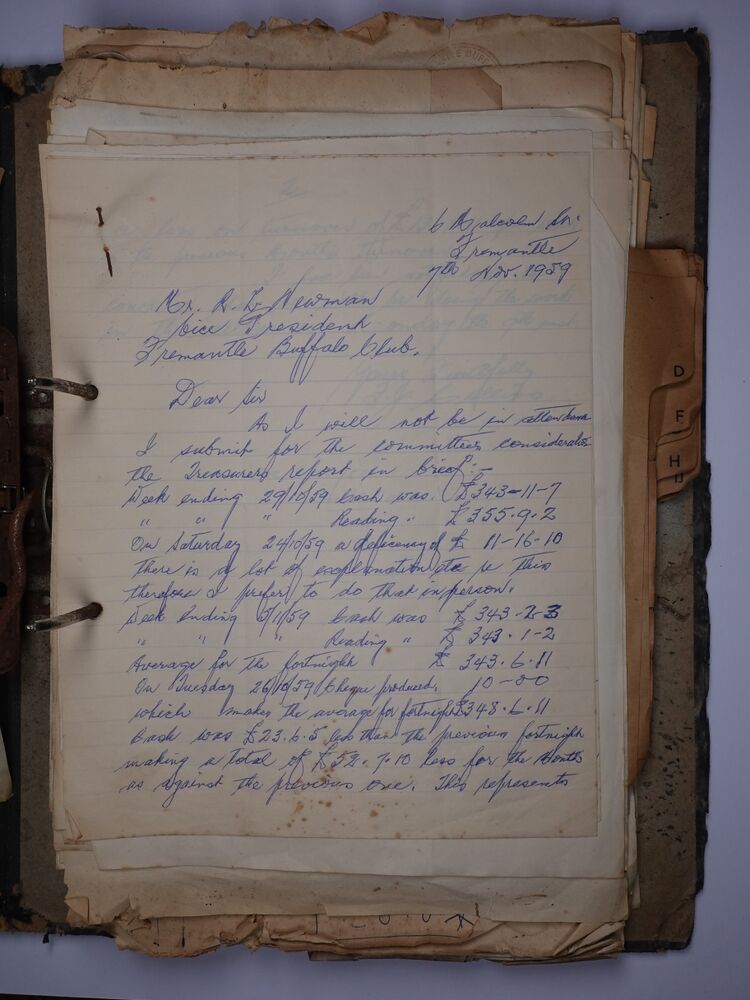 6 Malcolm St.
Fremantle
7th Nov. 1959
Mr. R. L. Newman
Vice President
Fremantle Buffalo Club.
Dear Sir
As I will not be in attendance
I submit for the committees consideration
the Treasurers report in brief:-
Week ending 29/10/59 Cash was. £343-11-7
" " " Reading " £355.9.2
On Saturday 24/10/59 a deficiency of £ 11-16-10
There is a lot of explanation etc re this
therefore I prefer to do that in person.
Week Ending 5/11/59 Cash was £343-2-3
" " " Reading " £ 343.1-2
Average for the fortnight £ 343.6.11
On Tuesday 26/10/59 Cheque produced. 10-0-0
which makes the average for fortnight £348.6.11
Cash was £23.6.5 less than the previous fortnight
making a total of £52.7.10 less for the Month
as against the previous one. This represents
D
F
H